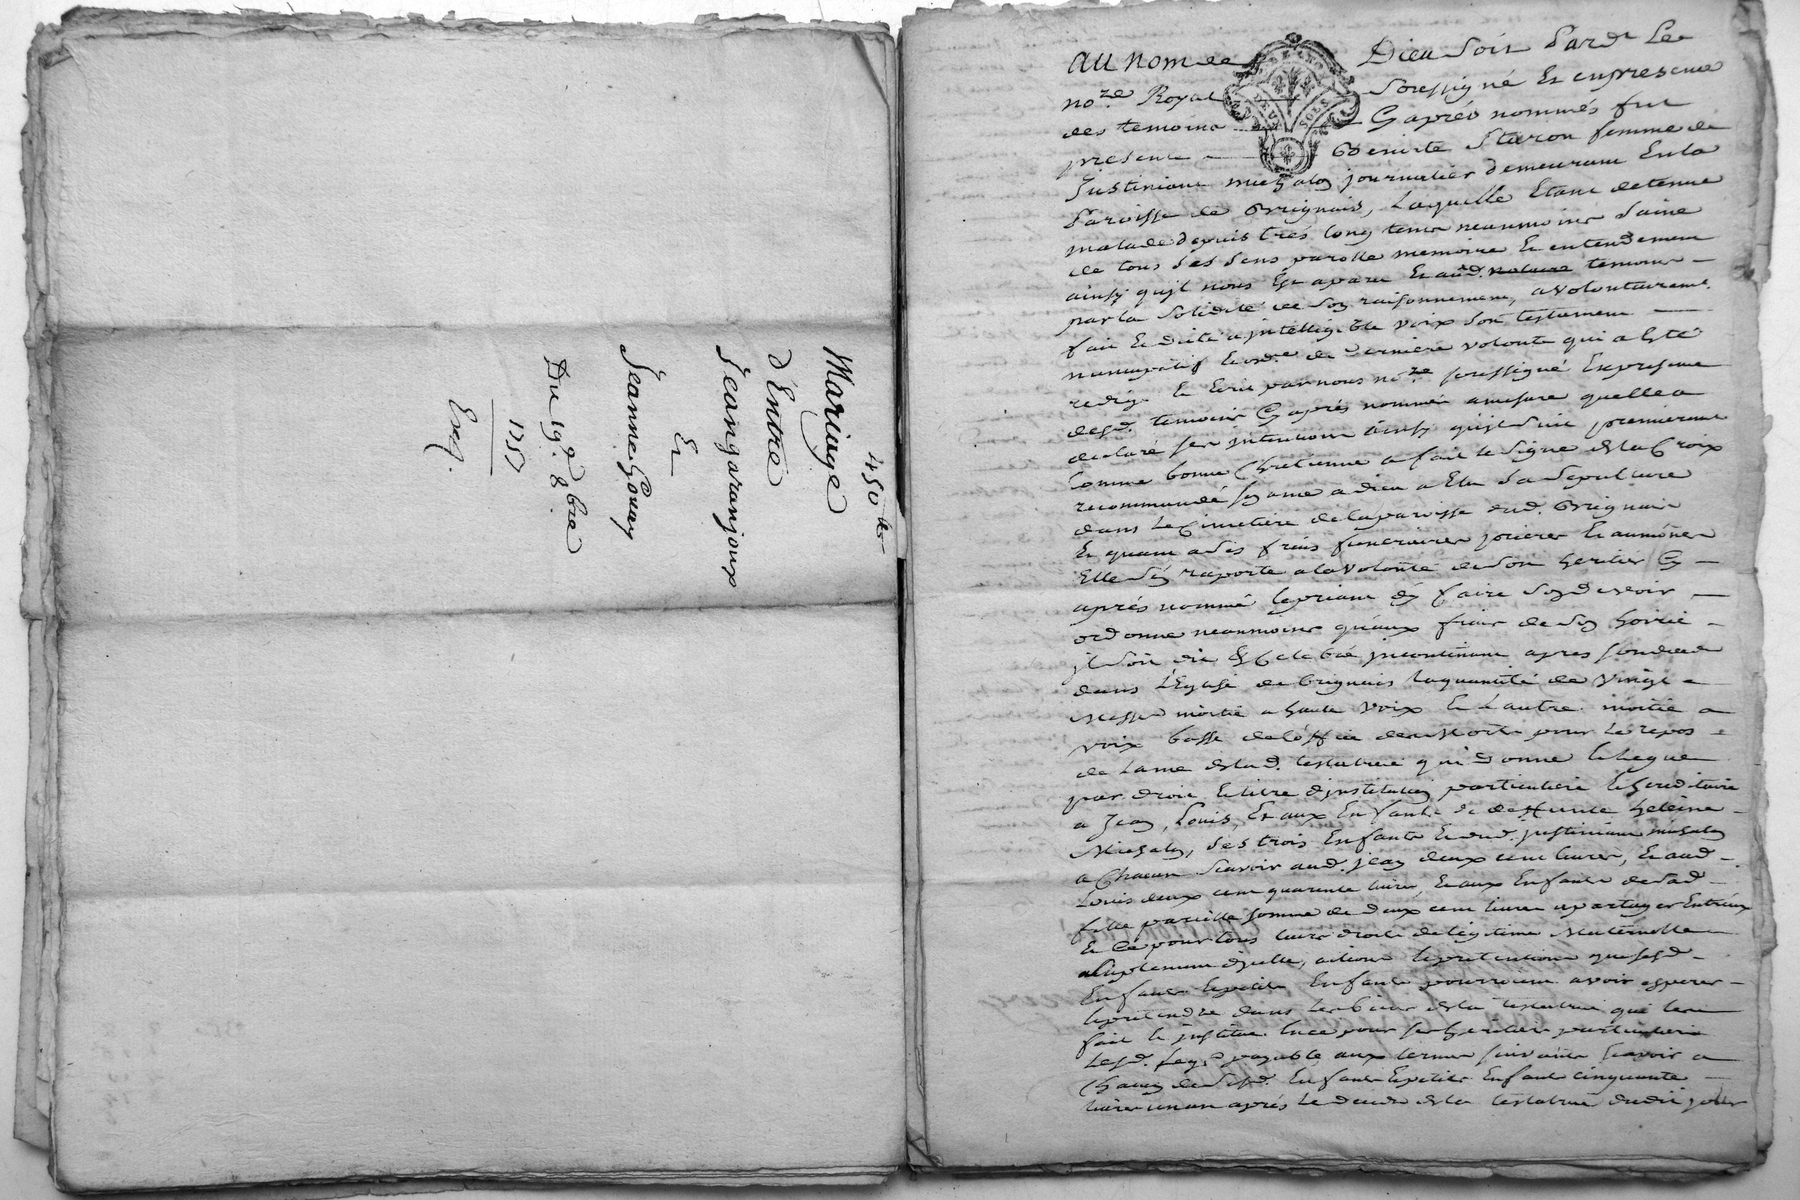 450 ₶
Mariage
D'Entre
Jean garanjoux
Et
Jeanne Gouay
Du 19.e 8.bre
1757
Exp.
au nom de Dieu Soit Pard.t Le
no.re Royal Soussigné Et en presence
des temoins Cy après nommés fut
presente Benoite Staron femme de
Justiniant michalon journalier demeurant En la
Paroisse de Brignais, Laquelle Etant detenue
malade depuis tres long tems neanmoins Saine
de tous Ses Sens parolle memoire Et entendement
ainsy qu'jl nous Est aparu Et aud. notaire temoins
par la Solidité de Son raisonnement, a volontairement
fait Et dicté a jntelligible voix Son testament
nuncupatif Et ord.re de derniere volonté qui a Eté
redigé Et Ecrit par nous no.re soussigné En presence
desd. temoins Cy après nommés a mesure quelle a
declaré ses jntentions ainsy qu'jl Suit premierement
Comme bonne Chretienne a fait le Signe de la Croix
recommandé son ame a dieu a Elu Sa Sepulture
dans Le Cimetière de la paroisse dud. Brignais
Et quant a Ses frais funeraires prieres Et aumônes
Elle S'en raporte a la volonté de Son heritier Cy
après nommé le priant d'en faire Son devoir
ordonne neanmoins qu'aux frais de Son hoirie
jl Soit dit Et Celebré jncontinent apres son deced
dans L'Eglise de brignais la quantité de vingt
Messes moitié a haute voix Et L'autre moitié a
voix basse de l'office des Morts pour Le repos
de Lame de lad. testatrice qui donne Et legue
par droit Et titre d'jnstitution particuliere Et hereditaire
a Jean, Louis, Et aux Enfants de deffunte heleine
Michalon, Ses trois Enfants Et dud. justiniant michalon
a Chacun Scavoir aud. jean deux cent livres, Et aud.
Louis deux cent quarente livres, Et aux Enfants de Sad.
fille pareille somme de deux cent livres a partager Entr'eux
Et Ce pour tous leurs droits de legitime Maternelle
Suplement d'jcelle, actions Et pretentions que Sesd.
Enfants Et petits Enfants pourroient avoir esperer
Et pretendre dans Les biens de la testatrice qui les
fait Et jnstitue En Ce pour ses heritiers particuliers
Lesd. Legs payable aux termes suivants Scavoir a
Chacun de Sesd. Enfants Et petits Enfants cinquante
livres un an après Le deceds de la testatrice dudit jour